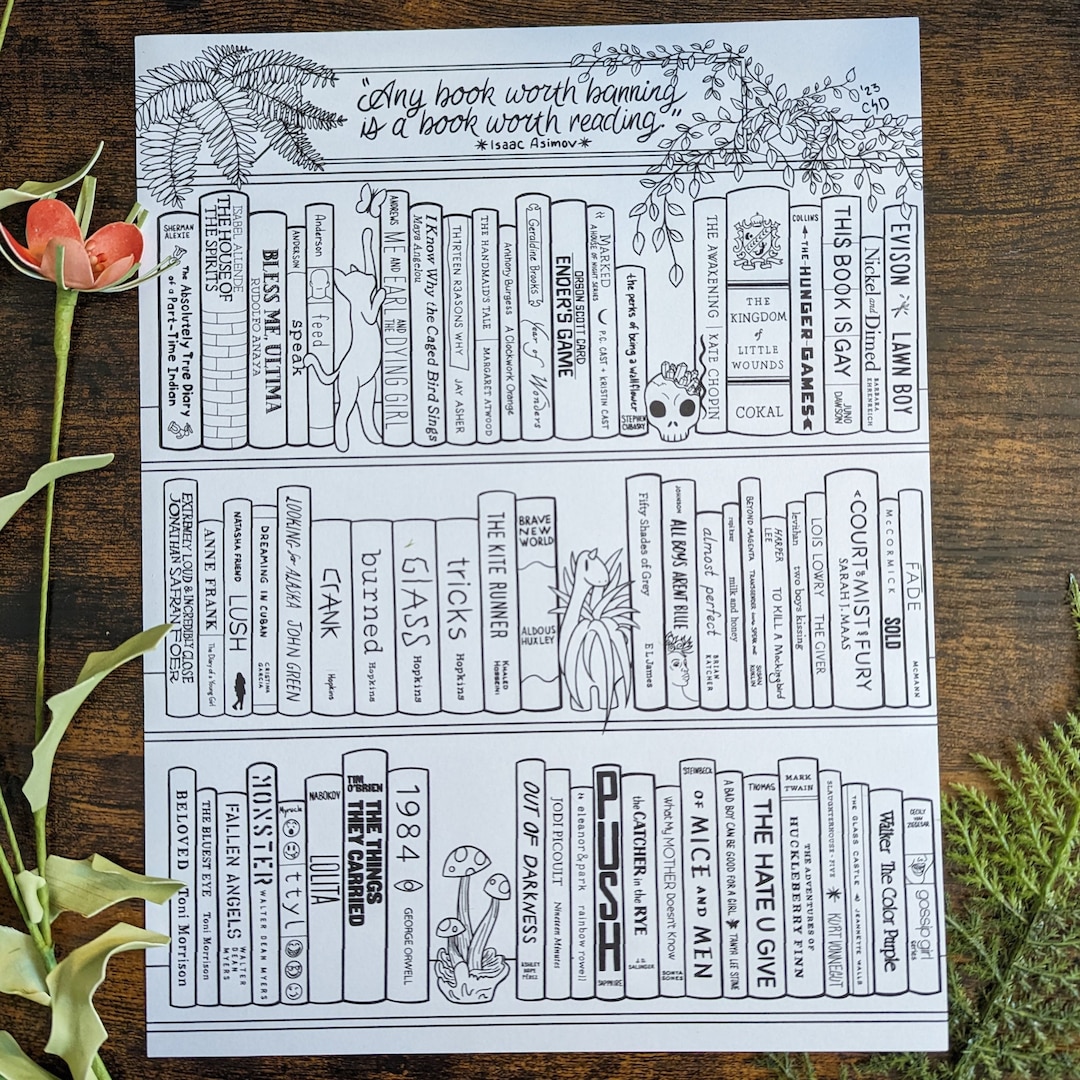 "Any book worth banning
is a book worth reading."
*Isaac Asimov*
'23
CSD
SHERMAN ALEXIE
The Absolutely True Diary
of a Part-Time Indian
ISABEL ALLENDE
THE HOUSE OF
THE SPIRITS
BLESS ME ULTIMA
RUDOLFO ANAYA
ANDERSON speak
Anderson feed
ANDREWS ME AND EARL AND THE DYING GIRL
I Know Why the Caged Bird Sings
Maya Angelou
TH1RTEEN R3ASONS WHY JAY ASHER
THE HANDMAID'S TALE MARGARET ATWOOD
Anthony Burgess A Clockwork Orange
Geraldine Brooks Year of Wonders
ORSON SCOTT CARD
ENDER'S GAME
MARKED
A HOUSE OF NIGHT SERIES P.C. CAST + KRISTIN CAST
the perks of being a wallflower STEPHEN CHBOSKY
THE AWAKENING | KATE CHOPIN
THE
KINGDOM
of
LITTLE
WOUNDS
COKAL
COLLINS THE HUNGER GAMES
THIS BOOK IS GAY JUNO DAWSON
Nickel and Dimed BARBARA EHRENREICH
EVISON LAWN BOY
EXTREMELY LOUD & INCREDIBLY CLOSE
JONATHAN SAFRAN FOER
ANNE FRANK The Diary of a Young Girl
NATASHA FRIEND LUSH
DREAMING IN CUBAN CRISTINA GARCIA
LOOKING for ALASKA JOHN GREEN
CRANK Hopkins
burned Hopkins
GlASS Hopkins
tricks Hopkins
THE KITE RUNNER KHALED HOSSEINI
BRAVE
NEW
WORLD
ALDOUS
HUXLEY
Fifty Shades of Grey E L James
JOHNSON ALL BOYS ARENT BLUE
almost perfect BRIAN KATCHER
milk and honey
BEYOND MAGENTA TRANSGENDER SPEAK OUT SUSAN KUKLIN
HARPER LEE TO KILL A Mockingbird
levithan two boys kissing
LOIS LOWRY THE GIVER
A COURT of MIST and FURY
SARAH J. MAAS
McCORMICK SOLD
FADE MCMANN
BELOVED Toni Morrison
THE BLUEST EYE Toni Morrison
FALLEN ANGELS WALTER DEAN MYERS
MONSTER WALTER DEAN MYERS
Myracle ttyl
NABOKOV LOLITA
TIM O'BRIEN THE THINGS
THEY CARRIED
1984 GEORGE ORWELL
OUT OF DARKNESS ASHLEY HOPE PÉREZ
JODI PICOULT Nineteen Minutes
eleanor & park rainbow rowell
PUSH SAPPHIRE
the CATCHER in the RYE J.D. SALINGER
What My MOTHER Doesn't Know SONYA SONES
STEINBECK OF MICE AND MEN
A BAD BOY CAN BE GOOD FOR A GIRL TANYA LEE STONE
THOMAS THE HATE U GIVE
MARK
TWAIN
THE ADVENTURES OF
HUCKLEBERRY FINN
SLAUGHTERHOUSE-FIVE KURT VONNEGUT
THE GLASS CASTLE JEANNETTE WALLS
Walker The Color Purple
CECILY VON ZIEGESAR
gossip girl
series